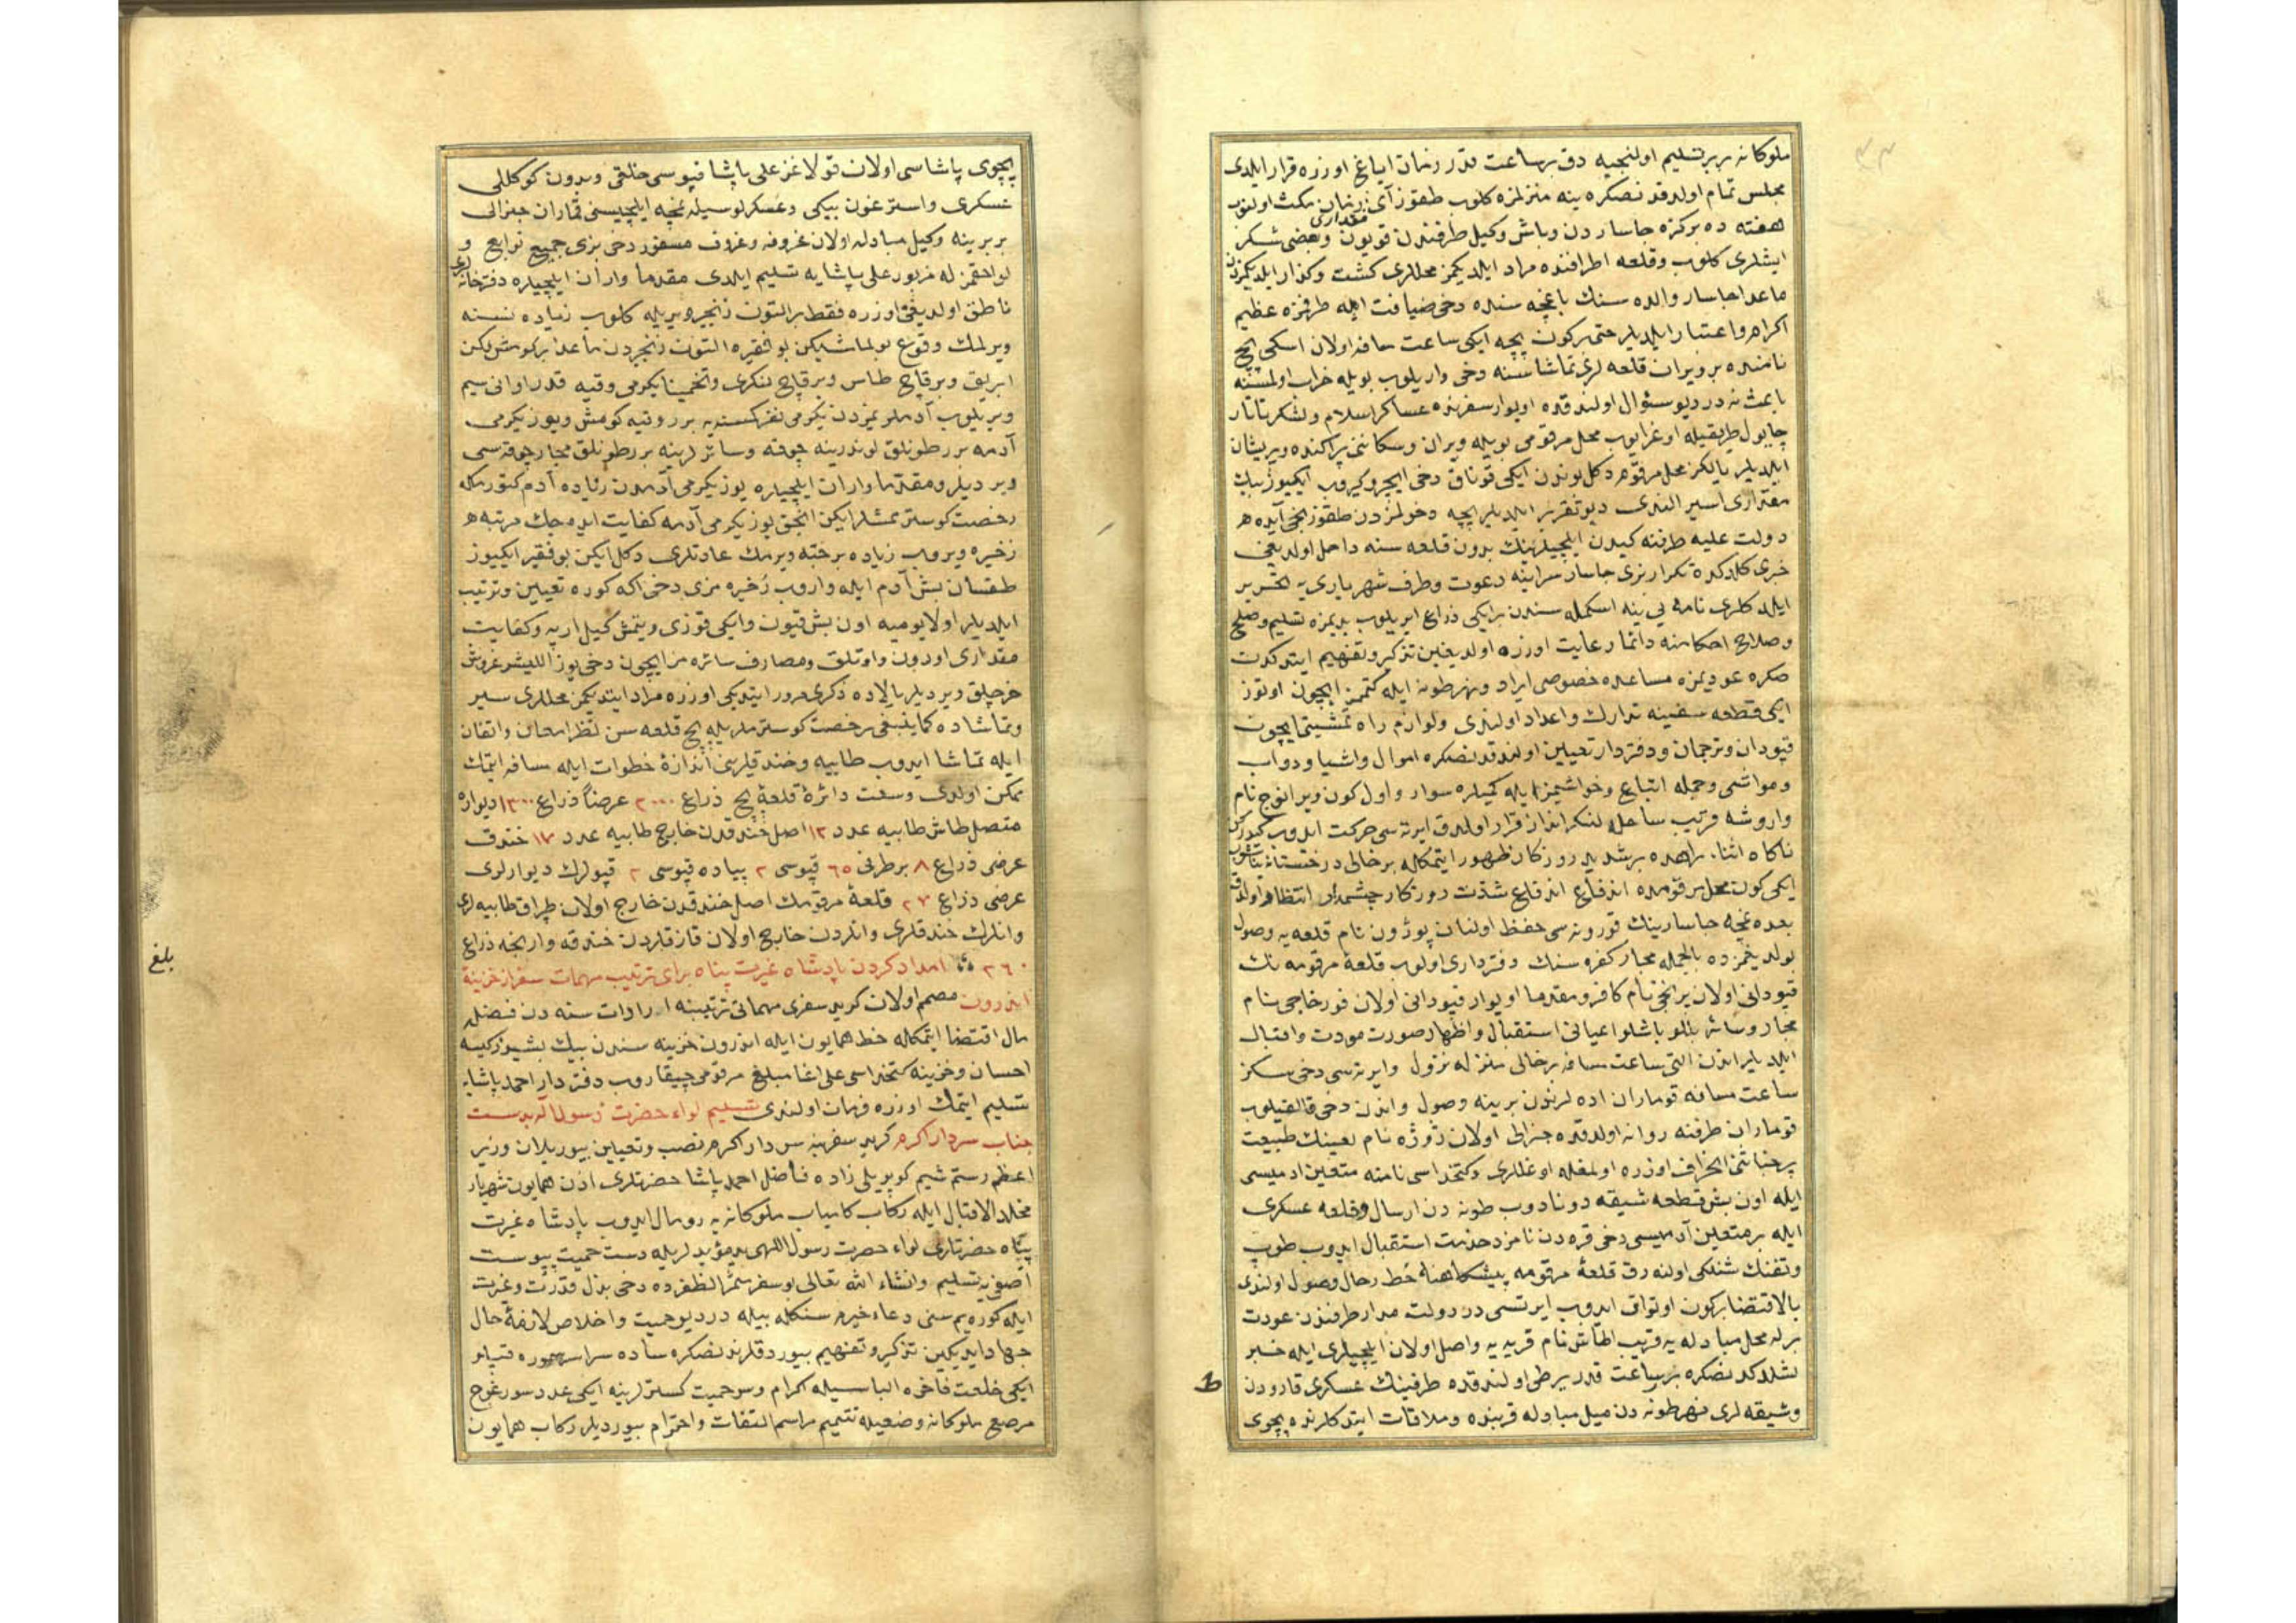 ملوكانه بربر تسليم اولنجيه دق برساعت قدر زمان اياغ اوزره قرار ايلدى
مجلس تمام اولدقدنصكره ينه منزلمزه كلوب طقوز آى زمان مكث اولنوب
هفته ده بر كره جاساردن وباش وكيل طرفندن قويون مقدارى وبعضى شكر
ايشلرى كلوب وقلعه اطرافنده مراد ايلديكمز محللرى كشت وكذار ايلديكمزدن
ماعدا جاسار والده سنك باغچه سنده دخى ضيافت ايله طرفمزه عظيم
اكرام واعتبار ايلديلر حتى بركون بچه ايكى ساعت مسافه اولان اسكى بچ
نامنده بر ويران قلعه لرى تماشاسنه دخى واريلوب بويله خراب اولمسنه
باعث نه در ديو سؤال اولندقده اويوار سفرنده عساكر اسلام ولشكر تاتار
چاپول طريقيله اوغرايوب محل مرقومى بويله ويران وسكاننى پراكنده وپريشان
ايلديلر يالكز محل مرقوم دكل بوندن ايكى قوناق دخى ايچرو كيروب ايكيوز بيك
مقدارى اسير الندى ديو تقرير ايلديلر بچه دخولمزدن طقوزنجى آيده
دولت عليه طرفنه كيدن ايلچيلرينك بدون قلعه سنه داخل اولديغى
خبرى كلدكده تكرار بزى جاسار سراينه دعوت وطرف شهريارى يه تحرير
ايلدكلرى نامه يى ينه اسكمله سندن بر ايكى ذراع ايريلوب يديمزه تسليم وصلح
وصلاح احكامنه دائما رعايت اوزره اولديغين تذكير وتفهيم ايتدكدن
صكره عوديمزه مساعده خصوصى ايراد ونهر طونه ايله كتمكمز ايچون اوتوز
ايكى قطعه سفينه تدارك واعداد اولندى ولوازم راه تمشيتى ايچون
قپودان وترجمان ودفتردار تعيين اولندقدنصكره اموال واشيا ودواب
ومواشى وجمله اتباع وخواشيمز ايله كميلره سوار واول كون ويرانوج نام
واروشه قريب ساحله لنكرانداز قرار اولندق ايرته سى حركت ايدوب كيدركن
ناكاه اثناء راهده بر شديد روزكار ظهور ايتمكله بر خالى درختستانه يناشوب
ايكى كون محل مرقومده اندفاع شدت روزكار چشمدار انتظار اولندق
بعده نمچه جاسارينك قورونه سى حفظ اولنان پوژون نام قلعه يه وصول
بولديغمزده بالجمله مجار كفره سنك دفتردارى اولوب قلعه مرقومه نك
قپودانى اولان برانجى نام كافر ومقدما اويوار قپودانى اولان فورخاجى نام
مجار وسائر بللو باشلو اعيانى استقبال واظهار صورت مودت واقبال
ايلديلر اندن التى ساعت مسافه بر خالى منزله نزول وايرته سى دخى سكز
ساعت مسافه قوماران اده لرندن برينه وصول واندن دخى قالقيلوب
قوماران طرفنه روانه اولدقده جنرالى اولان ژوژه نام لعينك طبيعت
پرخباثتى انحراف اوزره اولمغله اوغللرى وكتخداسى نامنه متعين ادميسى
ايله اون بش قطعه شيقه دونادوب طونه دن ارسال وقلعه عسكرى
ايله بر متعين آدميسى دخى قره دن نامزد خدمت استقبال ايدوب طوپ
وتفنك شنلكى اولنه رق قلعه مرقومه پيشكاهنه حط رحال وصول اولندى
بالاقتضا بركون اوتوراق ايدوب ايرتسى در دولت مدار طرفندن عودت
برله محل مبادله يه قريب اطاش نام قريه يه واصل اولان ايلچيلرى ايله خبر
لشلدكدنصكره برساعت قدر يرطى اولندقده طرفينك عسكرى قارودن
وشيقه لرى نهر طونه دن ميل مبادله قربنده وملاقات ايتدكلرنده پچوى
پچوى پاشاسى اولان قولاغز على پاشا قپوسى خلقى وبدون كوكللى
عسكرى واسترغون بيكى وعسكرلوسيله نمچه ايلچيسنى قماران جنرالى
بربرينه وكيل مبادله اولان غروفه وغروف مسفور دخى بزى جميع توابع و
لواحقمز له مزبور على پاشايه تسليم ايلدى مقدما واران ايلچيلره دفترخانه لرى
ناطق اولديغى اوزره فقط بر التون زنجير ويريله كلوب زياده نسنه
ويرلمك وقوع بولمامشيكن بو فقيره التون زنجيردن ماعدا بر كومش لكن
ابريق وبر قاچ طاس وبر قاچ لنكرى وتخمينا يكرمى وقيه قدر اوانى سيم
ويريلوب آدملريمزدن يكرمى نفر كمسنه يه برر وقيه كومش ويوز يكرمى
آدمه برر طونلق لوندرينه چوقه وسائرلرينه برر طونلق مجار چوقه سى
ويرديلر ومقدما واران ايلچيلره يوز يكرمى آدمدن زياده آدم كتورمكه
رخصت كوسترمشلر ايكن انجق يوز يكرمى آدمه كفايت ايده جك مرتبه
ذخيره ويروب زياده بر حبه ويرمك عادتلرى دكل ايكن بو فقير ايكيوز
طقسان بش آدم ايله واروب ذخيره مزى دخى اكه كوره تعيين وترتيب
ايلديلر اولا يوميه اون بش قيون وايكى قوزى ويتمش كيل ارپه وكفايت
مقدارى اودون واوتلق ومصارف سائره مز ايچون دخى يوز الليشر غروش
خرجلق ويرديلر بالاده ذكرى مرور ايتديكى اوزره مراد ايتديكمز محللرى سير
وتماشاده كما ينبغى رخصت كوسترملريله بچ قلعه سن نظر امعان واتقان
ايله تماشا ايدوب طابيه وخندقلرينى اندازه خطوات ايله مسافه ايتمك
ممكن اولدى وسعت دائره قلعه بچ ذراع ٢٠٠٠ عرضاً ذراع ١٣٠٠ ديواره
متصل طاش طابيه عدد ١٢ اصل خندقدن خارج طابيه عدد ١٧ خندق
عرضى ذراع ٨ بر طرفى ٦٥ قپوسى ٢ پياده قپوسى ٢ قپولرك ديوارلرى
عرضى ذراع ٢٧ قلعه مرقومه نك اصل خندقدن خارج اولان طپراق طابيه لرى
وانلرك خندقلرى وانلردن خارج اولان قازقلردن خندقه وارنجه ذراع
٣٦٠ امداد كردن پادشاه غيرت پناه براى ترتيب مهمات سفر از خزينه
اندرون مصمم اولان كريد سفرى مهماتى ترتيبنه ايرادات سنه دن فضله
مال اقتضا ايتمكله خط همايون ايله اندرون خزينه سندن بيك بشيوز كيسه
احسان وخزينه كتخداسى على اغا مبلغ مرقومى چيقاروب دفتردار احمد پاشايه
تسليم ايتمك اوزره فرمان اولندى تسليم لواء حضرت رسول الله بدست
جناب سردار اكرم كريد سفرينه سردار اكرم نصب وتعيين بيوريلان وزير
اعظم رستم شيم كوپريلى زاده فاضل احمد پاشا حضرتلرى اذن همايون شهريار
مخلد الاقبال ايله ركاب كامياب ملوكانه يه رومال ايدوب پادشاه غيرت
پناه حضرتلرى لواء حضرت رسول اللهى يد مؤيدلريله دست حميت پيوست
آصفى يه تسليم وانشاء الله تعالى بو سفر مثمر الظفرده دخى بذل قدرت وغيرت
ايله كوره يم سنى دعاء خيرم سنكله بيله در ديو حميت واخلاص لازمه حال
جهاد ايديكين تذكير وتفهيم بيوردقلرندنصكره ساده سراسر سموره قپلو
ايكى خلعت فاخره الباسيله اكرام وسر حميت كسترلرينه ايكى عدد سورغوج
مرصع ملوكانه وضعيله تتميم مراسم التفات واحترام بيورديلر ركاب همايون
بلغ